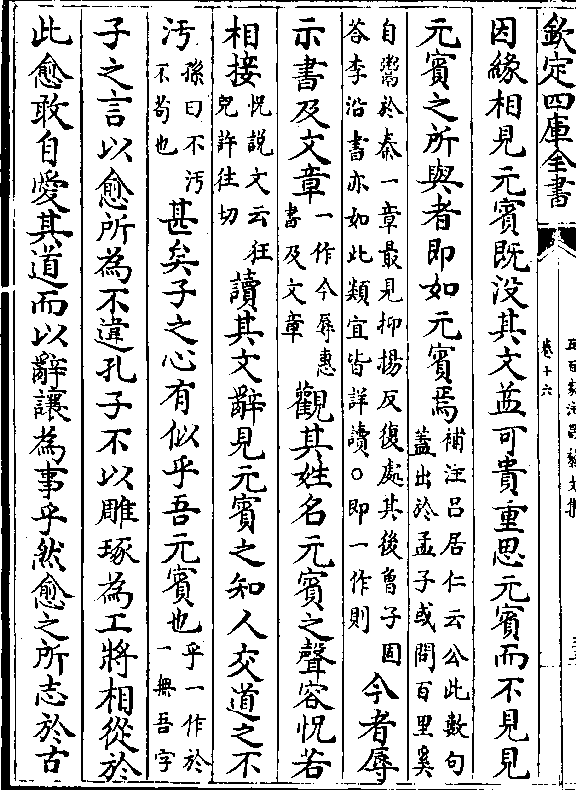 欽定四庫全書
卷十六
因緣相見元賓既没其文益可貴重思元賓而不見見
元賓之所與者即如元賓焉
補注吕居仁云公此數句
蓋出於孟子或問百里奚
自鬻於秦一章最見抑揚反復處其後曾子固
答李沿書亦如此類宜皆詳讀○即一作則
今者辱
示書及文章
一作今辱惠
書及文章
觀其姓名元賓之聲容怳若
相接
怳説文云狂
皃許往切
讀其文辭見元賓之知人交道之不
汚
孫曰不汚
不苟也
甚矣子之心有似乎吾元賓也
乎一作於
一無吾字
子之言以愈所為不違孔子不以雕琢為工將相從於
此愈敢自愛其道而以辭讓為事乎然愈之所志於古